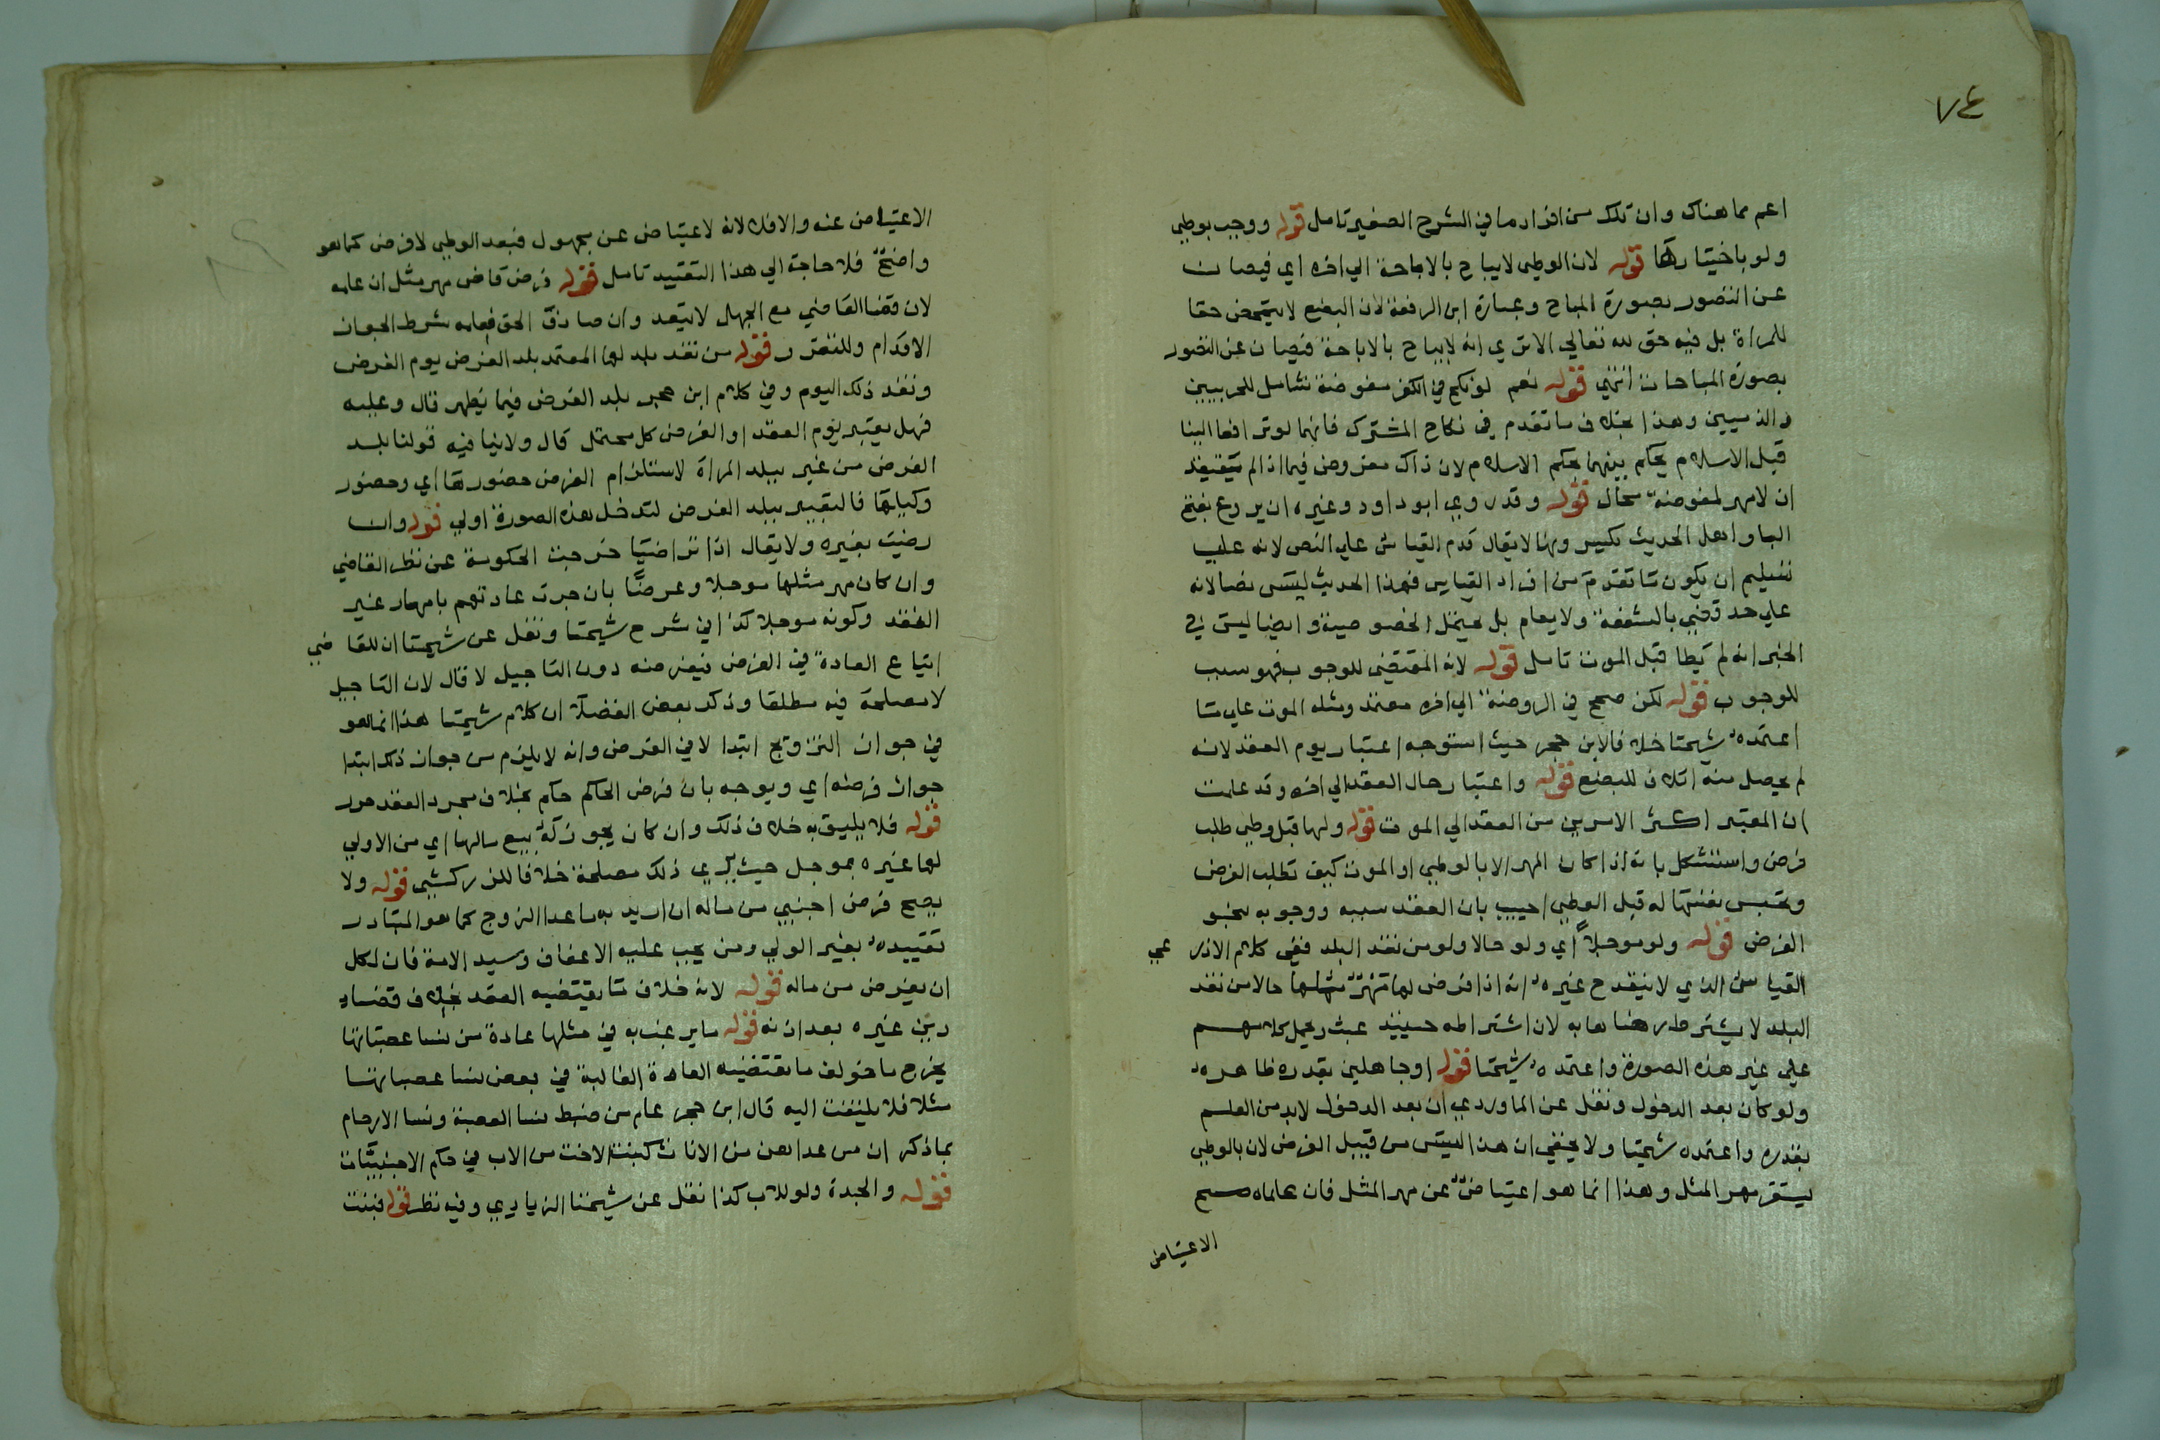 ٧٤
اعم مما هناك وان تلك من افراد ما في الشرح الصغير تامل قوله ووجب بوطي
ولو باختيارها قوله لان الوطي لا يباح بالاباحة الي اخره اي فيصان
عن التصور بصورة المباح وعبارة ابن الرفعة لان البضع لا يتمحض حقا
للمراة بل فيه حق لله تعالي الا تري انه لا يباح بالاباحة فيصان عن التصور
بصورة المباحات انتهي قوله نعم لو نكح في الكفر مفوضة تشامل للحربيين
والذميين وهذا بخلاف ما تقدم في نكاح المشرك فانهما لو ترافعا الينا
قبل الاسلام يحكم بينهما بحكم الاسلام لان ذاك مفروض فيما اذا لم
ان لا مهر لمفوضة بحال قوله وقد روي ابو داود وغيره ان بروع بفتح
البا واهل الحديث بكسرونها لا يقال قدم القياس علي النص لانه علي
تسليم ان يكون ما تقدم من افراد القياس فهذا الحديث ليس نصا لانه
علي حد قضي بالشفعة ولا يعام بل يحتمل الخصوصية وايضا ليس في
الخبر انه لم يطا قبل الموت تامل قوله لانه المقتضي للوجوب فهو سبب
للوجوب قوله لكن صحح في الروضة الي اخره معتمد ومثله الموت علي ما
اعتمده شيخنا خلافا لابن حجر حيث استوجه اعتبار يوم العقد لانه
لم يحصل منه اتلاف للبضع قوله واعتبار حال العقد الي اخره وقد علمت
ان المعتبر اكثر الامرين من العقد الي الموت قوله ولها قبل وطي طلب
فرض واستشكل بانه اذا كان المهر لا بالوطي او الموت كيف تطلب الفرض
وتحبس نفسها له قبل الوطي اجيب بان العقد سببه ووجوبه بنحو
الفرض قوله ولو موجلا اي ولو حالا ولو من نقد البلد ففي كلام الاذرعي
القياس الذي لا ينقدح غيره انه اذا فرض لها مهر مثلها حالا من نقد
البلد لا يشترط رضاها به لان اشتراطه حينيذ عبث ويحمل كلامهم
علي غير هذه الصورة واعتمده شيخنا قوله او جاهلين بقدره ظاهره
ولو كان بعد الدخول ونقل عن الماوردي ان بعد الدخول لا بد من العلم
بقدره واعتمده شيخنا ولا يخفي ان هذا ليس من قبيل الفرض لان بالوطي
يستقر مهر المثل وهذا انما هو اعتياض عن مهر المثل فان علماه صح
الاعتياض
الاعتياض عنه والا فلا لانه لا عتياض عن مجهول فبعد الوطي لا فرض كما هو
واضح فلا حاجة الي هذا التقييد تامل قوله فرض قاض مهر مثل ان علمه
لان قضا القاضي مع الجهل لا يتعد وان صادف الحق فعلمه شرط لجواز
الاقدام وللنفوذ قوله من نقد بلد لها المعتمد بلد الفرض يوم الفرض
ونقد ذلك اليوم وفي كلام ابن حجر بلد الفرض فيما يظهر قال وعليه
فهل يعتبر يوم العقد او الفرض كل محتمل قال ولا ينافيه قولنا بلد
الفرض من غير ببلد المراة لاستلزام الفرض حضورها اي وحضور
وكيلها فالتعبير ببلد الفرض لتدخل هذه الصورة اولي قوله وان
رضيت بغيره ولا يقال اذا تراضيا خرجت الحكومة عن نظر القاضي
وان كان مهر مثلها موجلا وعرضا بان جرت عادتهم بامهار غير
النقد وكونه موجلا كذا في شرح شيخنا ونقل عن شيخنا ان للقاضي
اتباع العادة في الفرض فيفرضه دون التاجيل لا قال لان التاجيل
لا مصلحة فيه مطلقا وذكر بعض الفضلا ان كلام شيخنا هذا انما هو
في جواز التزويج ابتدا لا في الفرض وانه لا يلزم من جواز ذلك ابتدا
جواز فرضه اي ويوجه بان فرض الحاكم حكم بخلاف مجرد العقد
قوله فلا يليق به خلاف ذلك وان كان يجوز له بيع مالها اي من الاولي
لها غيره بموجل حيث يري ذلك مصلحة خلافا للزركشي قوله ولا
يصح فرض اجنبي من ماله ان اريد به ما عدا الزوج كما هو المتبادر
تقييده بغير الولي ومن يجب عليه الاعفاف وسيد الامة فان لكل
ان يفرض من ماله قوله لانه خلاف ما يقتضيه العقد بخلاف قضاء
دين غيره بعد اذنه قوله ما يرغب به في مثلها عادة من نسا عصباتها
يخرج ما خولف ما تقتضيه العادة الغالبة في بعض نسا عصباتها
مثلا فلا يلتفت اليه قال ابن حجر عام من ضبط نسا العصبة ونسا الارحام
بما ذكر ان من عداهن من الاناث كبنت الاخت من الاب في حكم الاجنبيات
قوله والجدة ولو للاب كذا نقل عن شيخنا الزيادي وفيه نظر قوله فبنت